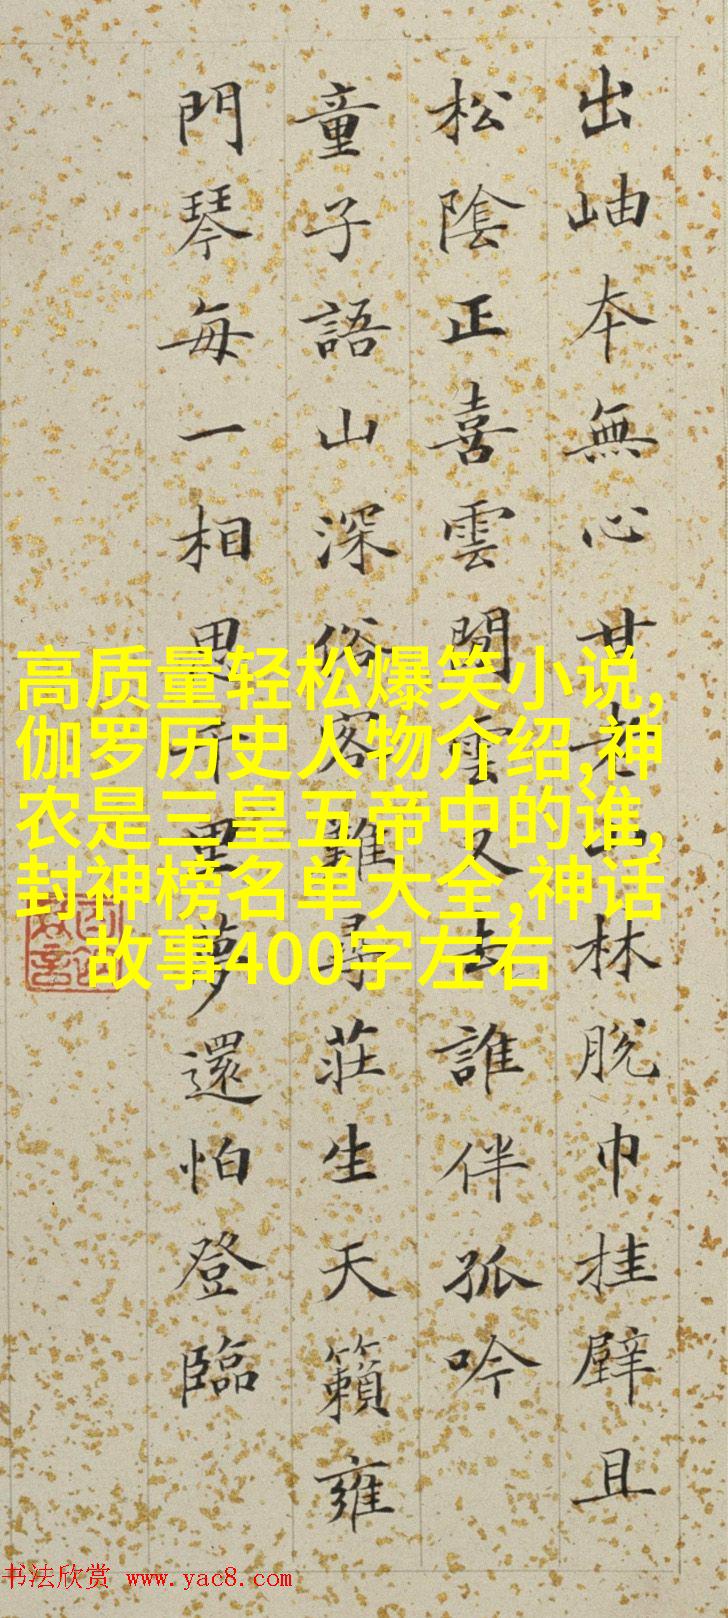 出岫本無心甘老山林脫巾挂壁且
松陰正喜雲閒雲又去誰伴孤吟
童子語山深俗客難尋莊生天籟雍
門琴每一相思千里夢還怕登臨
高质量轻松爆笑小说,
伽罗历史人物介绍,神
农是三皇五帝中的谁,
封神榜名单大全,神话
故事400字左右
书法欣赏 www.yac8.com